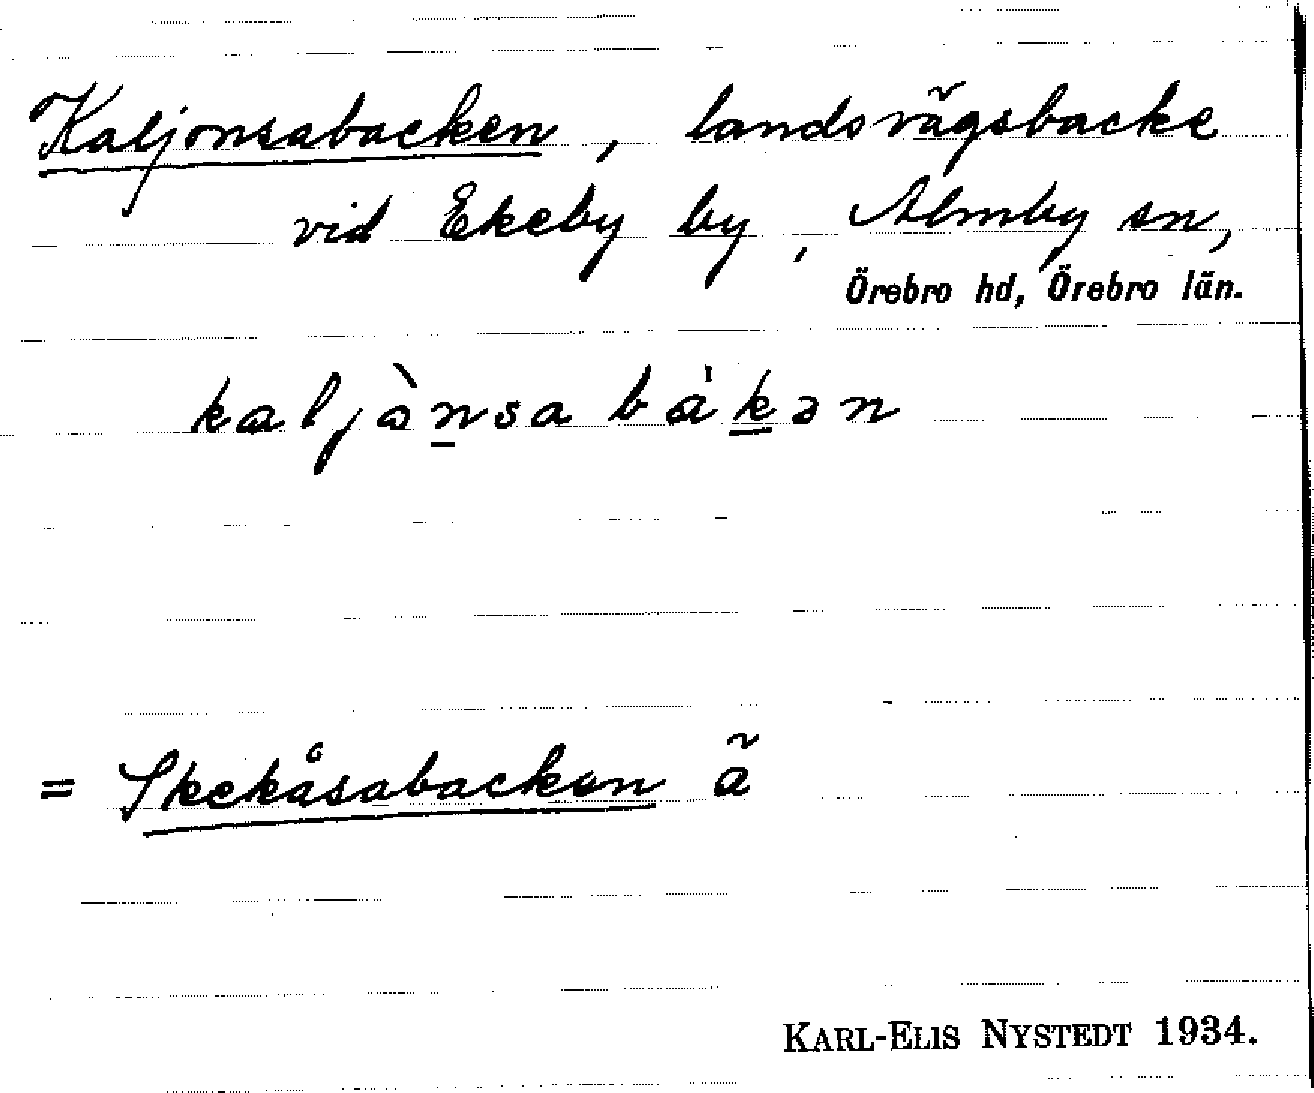 Kaljonsabacken, landsvägsbacke
vid Ekeby by, Almby sn,
Örebro hd, Örebro län.
kaljònsa bákən
= Skekåsabacken ä
KARL-ELIS NYSTEDT 1934.